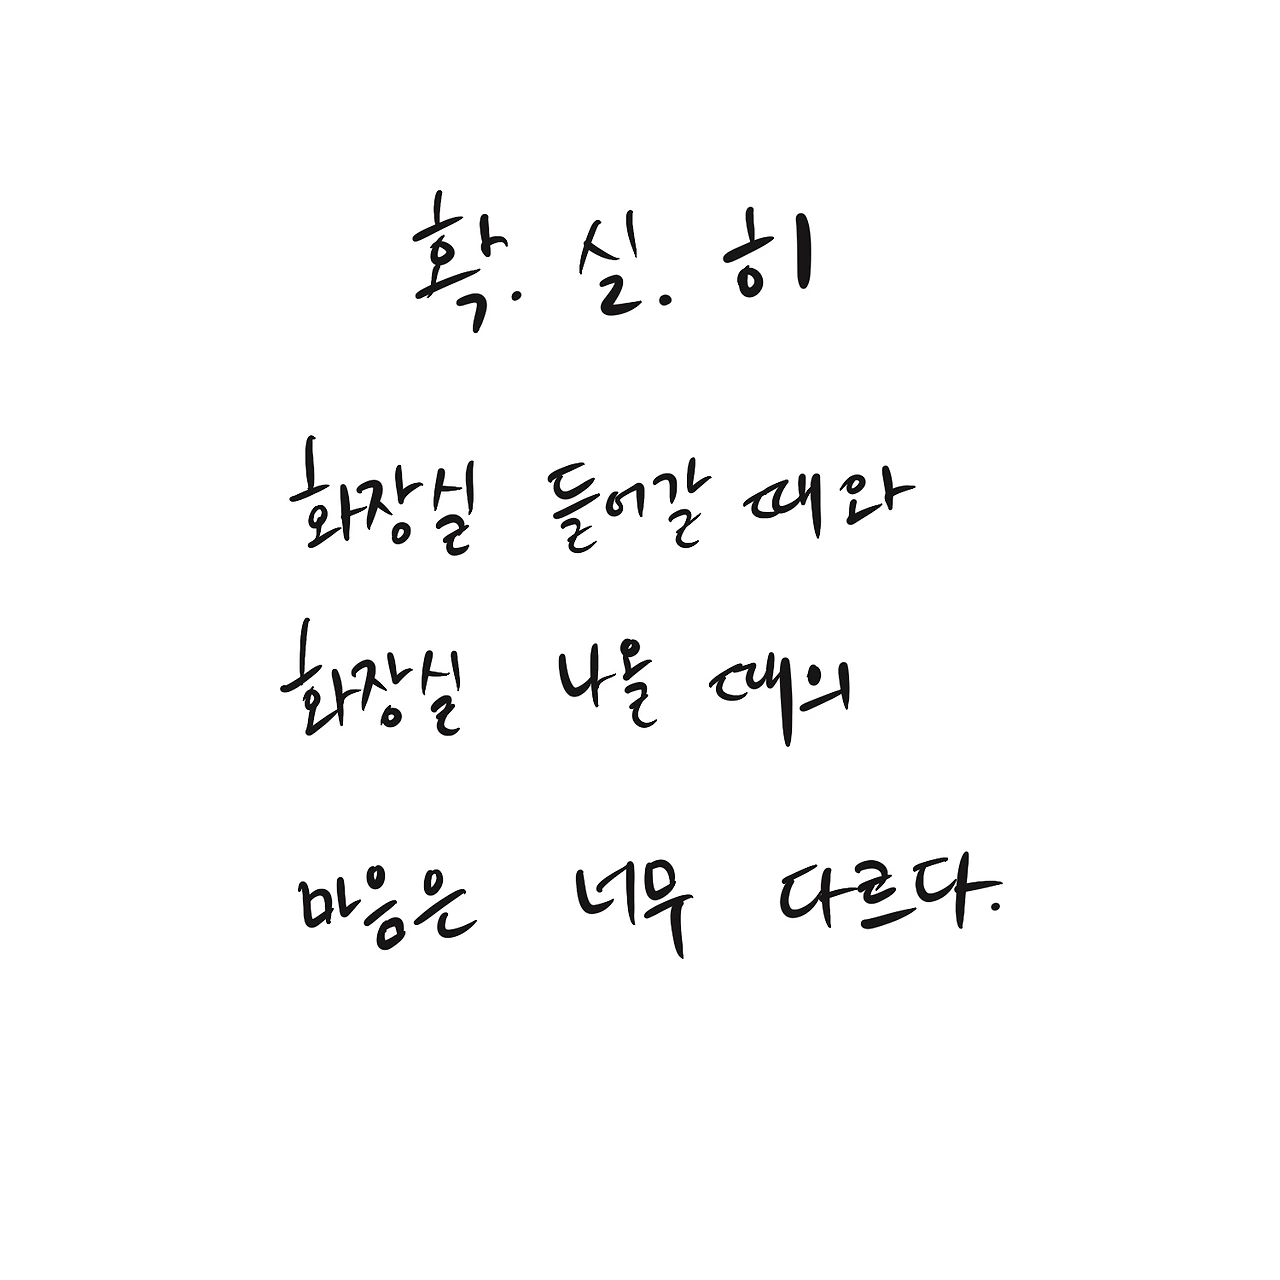 확. 실. 히
화장실 들어갈 때와
화장실 나올 때의
마음은 너무 다르다.